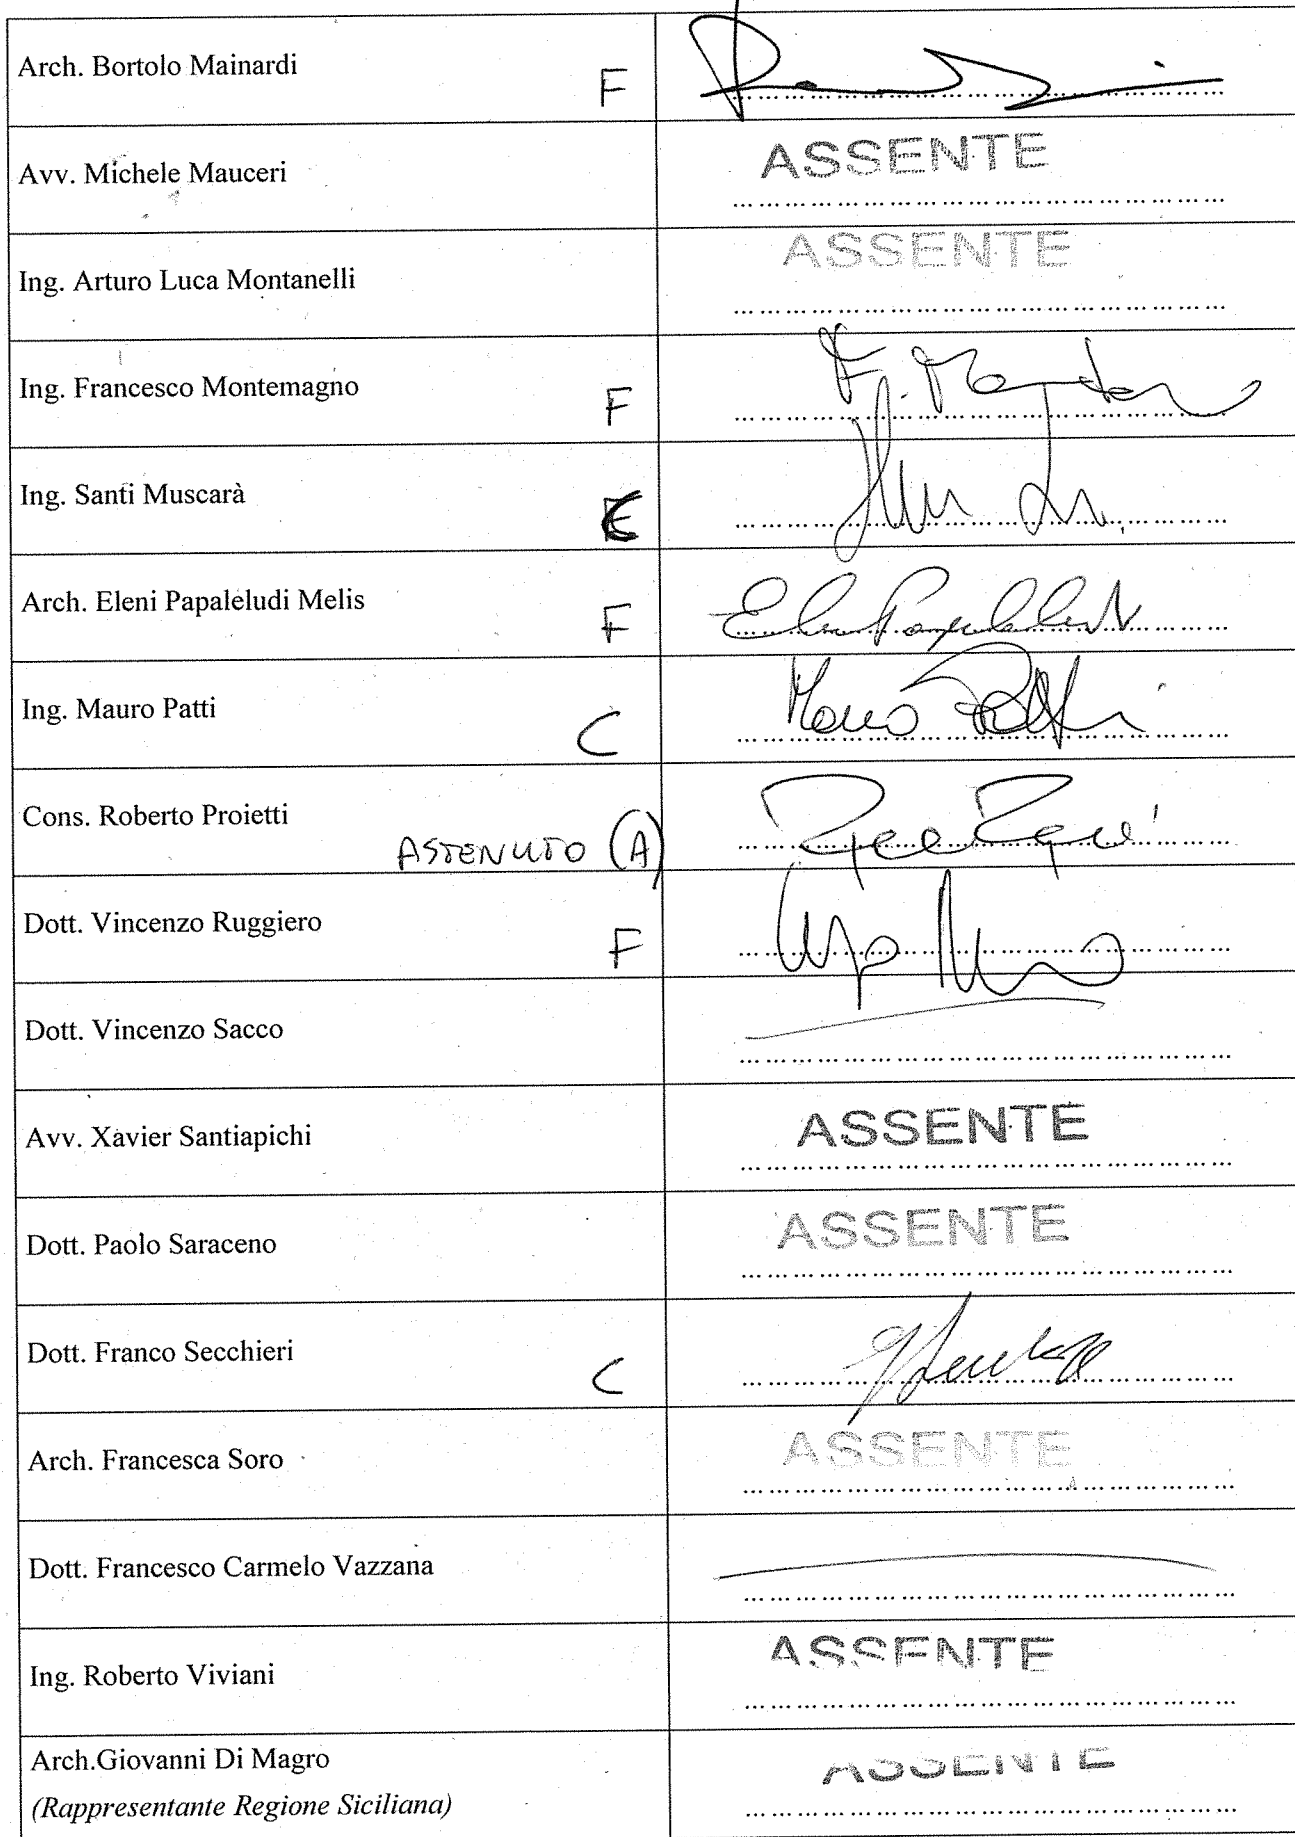 Arch. Bortolo Mainardi F
Avv. Michele Mauceri ASSENTE
Ing. Arturo Luca Montanelli ASSENTE
Ing. Francesco Montemagno F
Ing. Santi Muscarà
Arch. Eleni Papaleludi Melis F
Ing. Mauro Patti C Mauro Patti
Cons. Roberto Proietti
ASTENUTO (A)
Dott. Vincenzo Ruggiero F
Dott. Vincenzo Sacco
Avv. Xavier Santiapichi ASSENTE
Dott. Paolo Saraceno ASSENTE
Dott. Franco Secchieri C
Arch. Francesca Soro ASSENTE
Dott. Francesco Carmelo Vazzana
Ing. Roberto Viviani ASSENTE
Arch.Giovanni Di Magro ASSENTE
(Rappresentante Regione Siciliana)